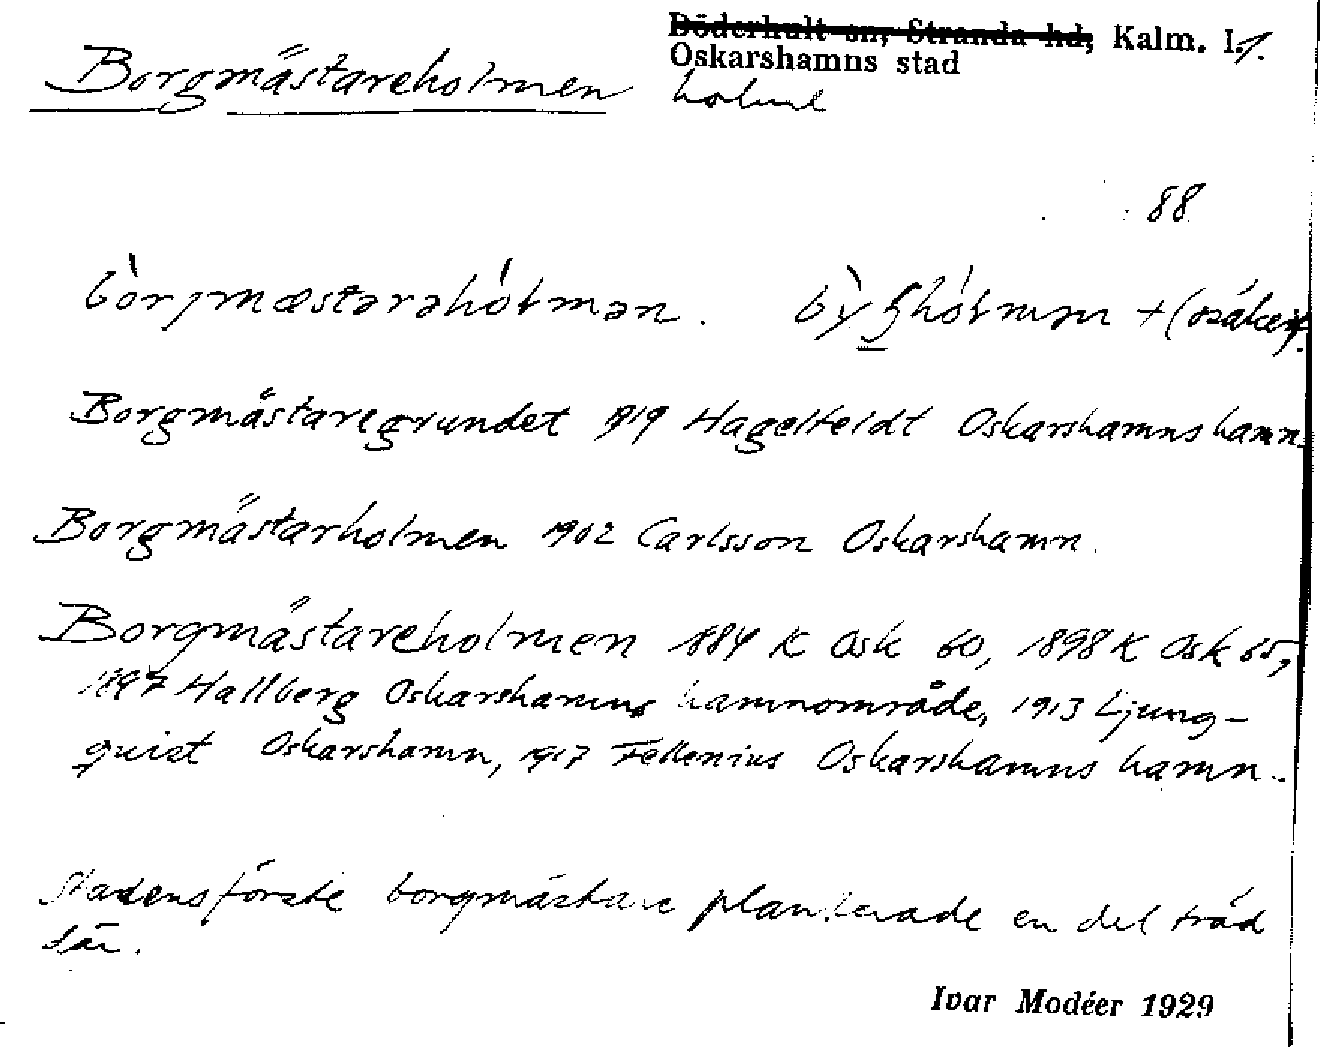 Borgmästareholmen
Döderhult sn, Stranda hd, Kalm. l.
Oskarshamns stad
holme
88
bòrgmæstarəhólmən. hólmən + (osäkert).
Borgmästaregrundet 1919 Hagelfeldt Oskarshamns hamn
Borgmästarholmen 1902 Carlsson Oskarshamn.
Borgmästareholmen 1884 K Osk 60, 1898 K Osk 65,
1897 Hallberg Oskarshamns hamnområde, 1913 Ljung-
quist Oskarshamn, 1917 Fellenius Oskarshamns hamn.
Stadens förste borgmästare planterade en del träd
där.
Ivar Modéer 1929